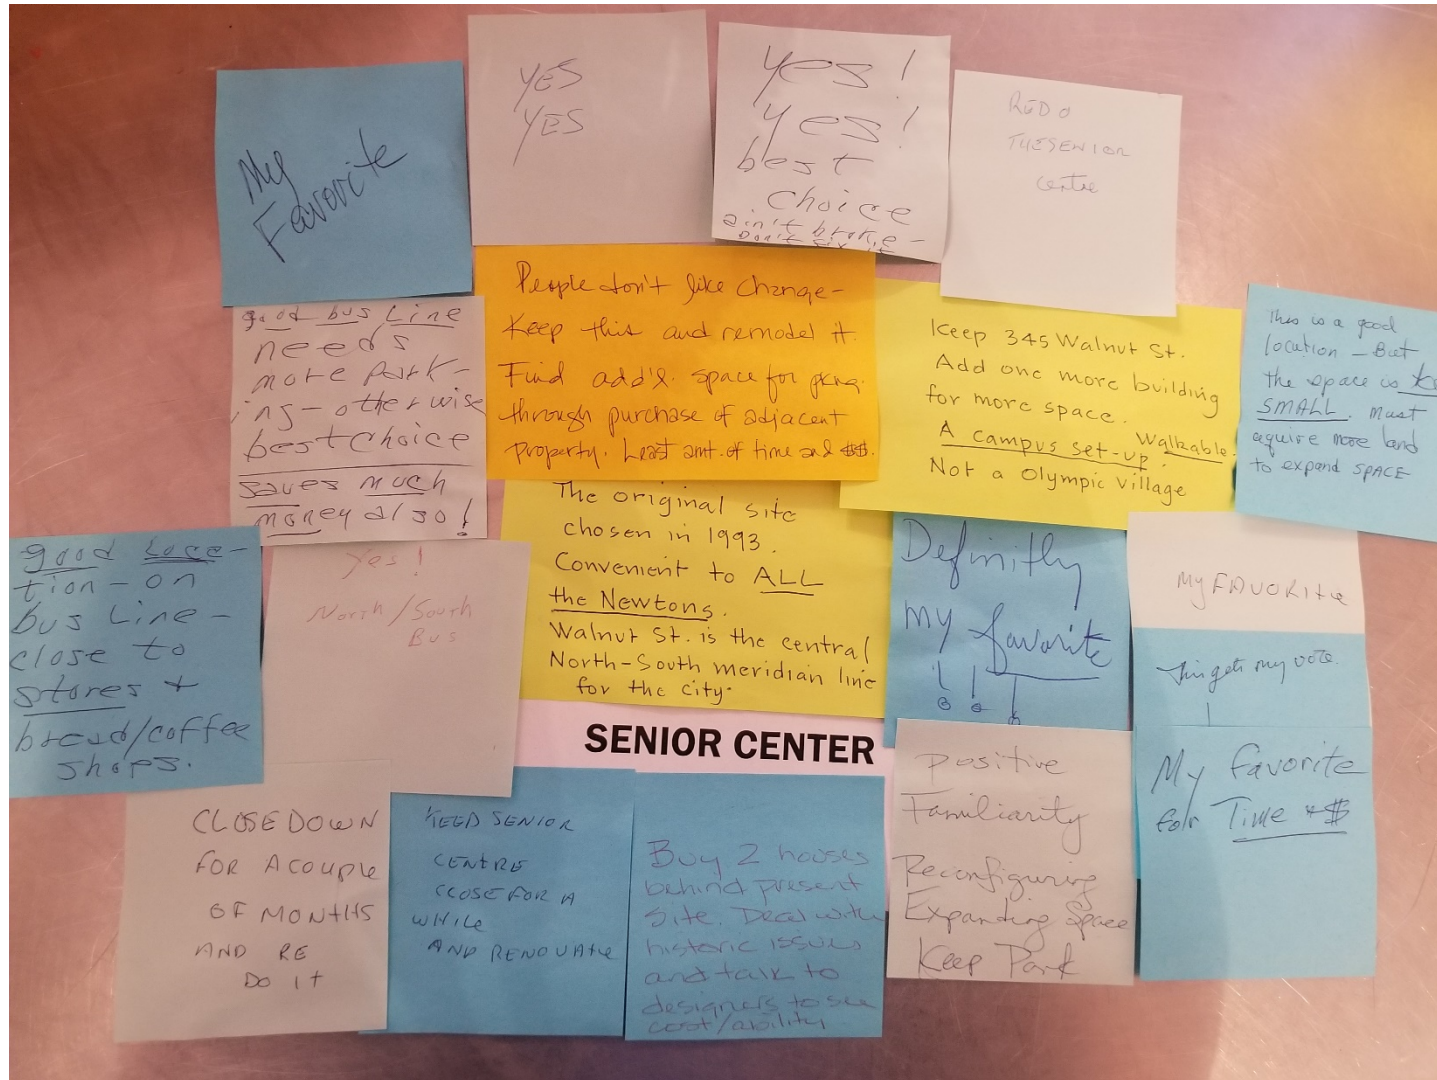 My
Favorite
YES
YES
yes!
yes!
best
choice
ain't broke –
Don't fix it
REDO
THESENIOR
Centre
good bus Line
needs
more park-
ing – otherwise
best choice
saves much
money also!
People don't like change –
Keep this and remodel it.
Find add'l. space for pkng.
through purchase of adjacent
property. Least amt. of time and $$.
Keep 345 Walnut St.
Add one more building
for more space.
A campus set-up. Walkable.
Not a Olympic Village
This is a good
location – But
the space is
SMALL. Must
aquire more land
to expand SPACE
good Loca-
tion – on
bus Line –
close to
stores +
bread/coffee
shops.
Yes!
North/South
Bus
The original site
chosen in 1993.
Convenient to ALL
the Newtons.
Walnut St. is the central
North-South meridian line
for the city.
Definitly
my favorite
My FAVORITE
This gets my vote.
SENIOR CENTER
My favorite
for Time + $
CLOSE DOWN
FOR A COUPLE
OF MONTHS
AND RE
DO IT
KEEP SENIOR
CENTRE
CLOSE FOR A
WHILE
AND RENOVATE
Buy 2 houses
behind present
site. Deal with
historic issues
and talk to
designers to see
cost/ability
positive
Familiarity
Reconfiguring
Expanding Space
Keep Park